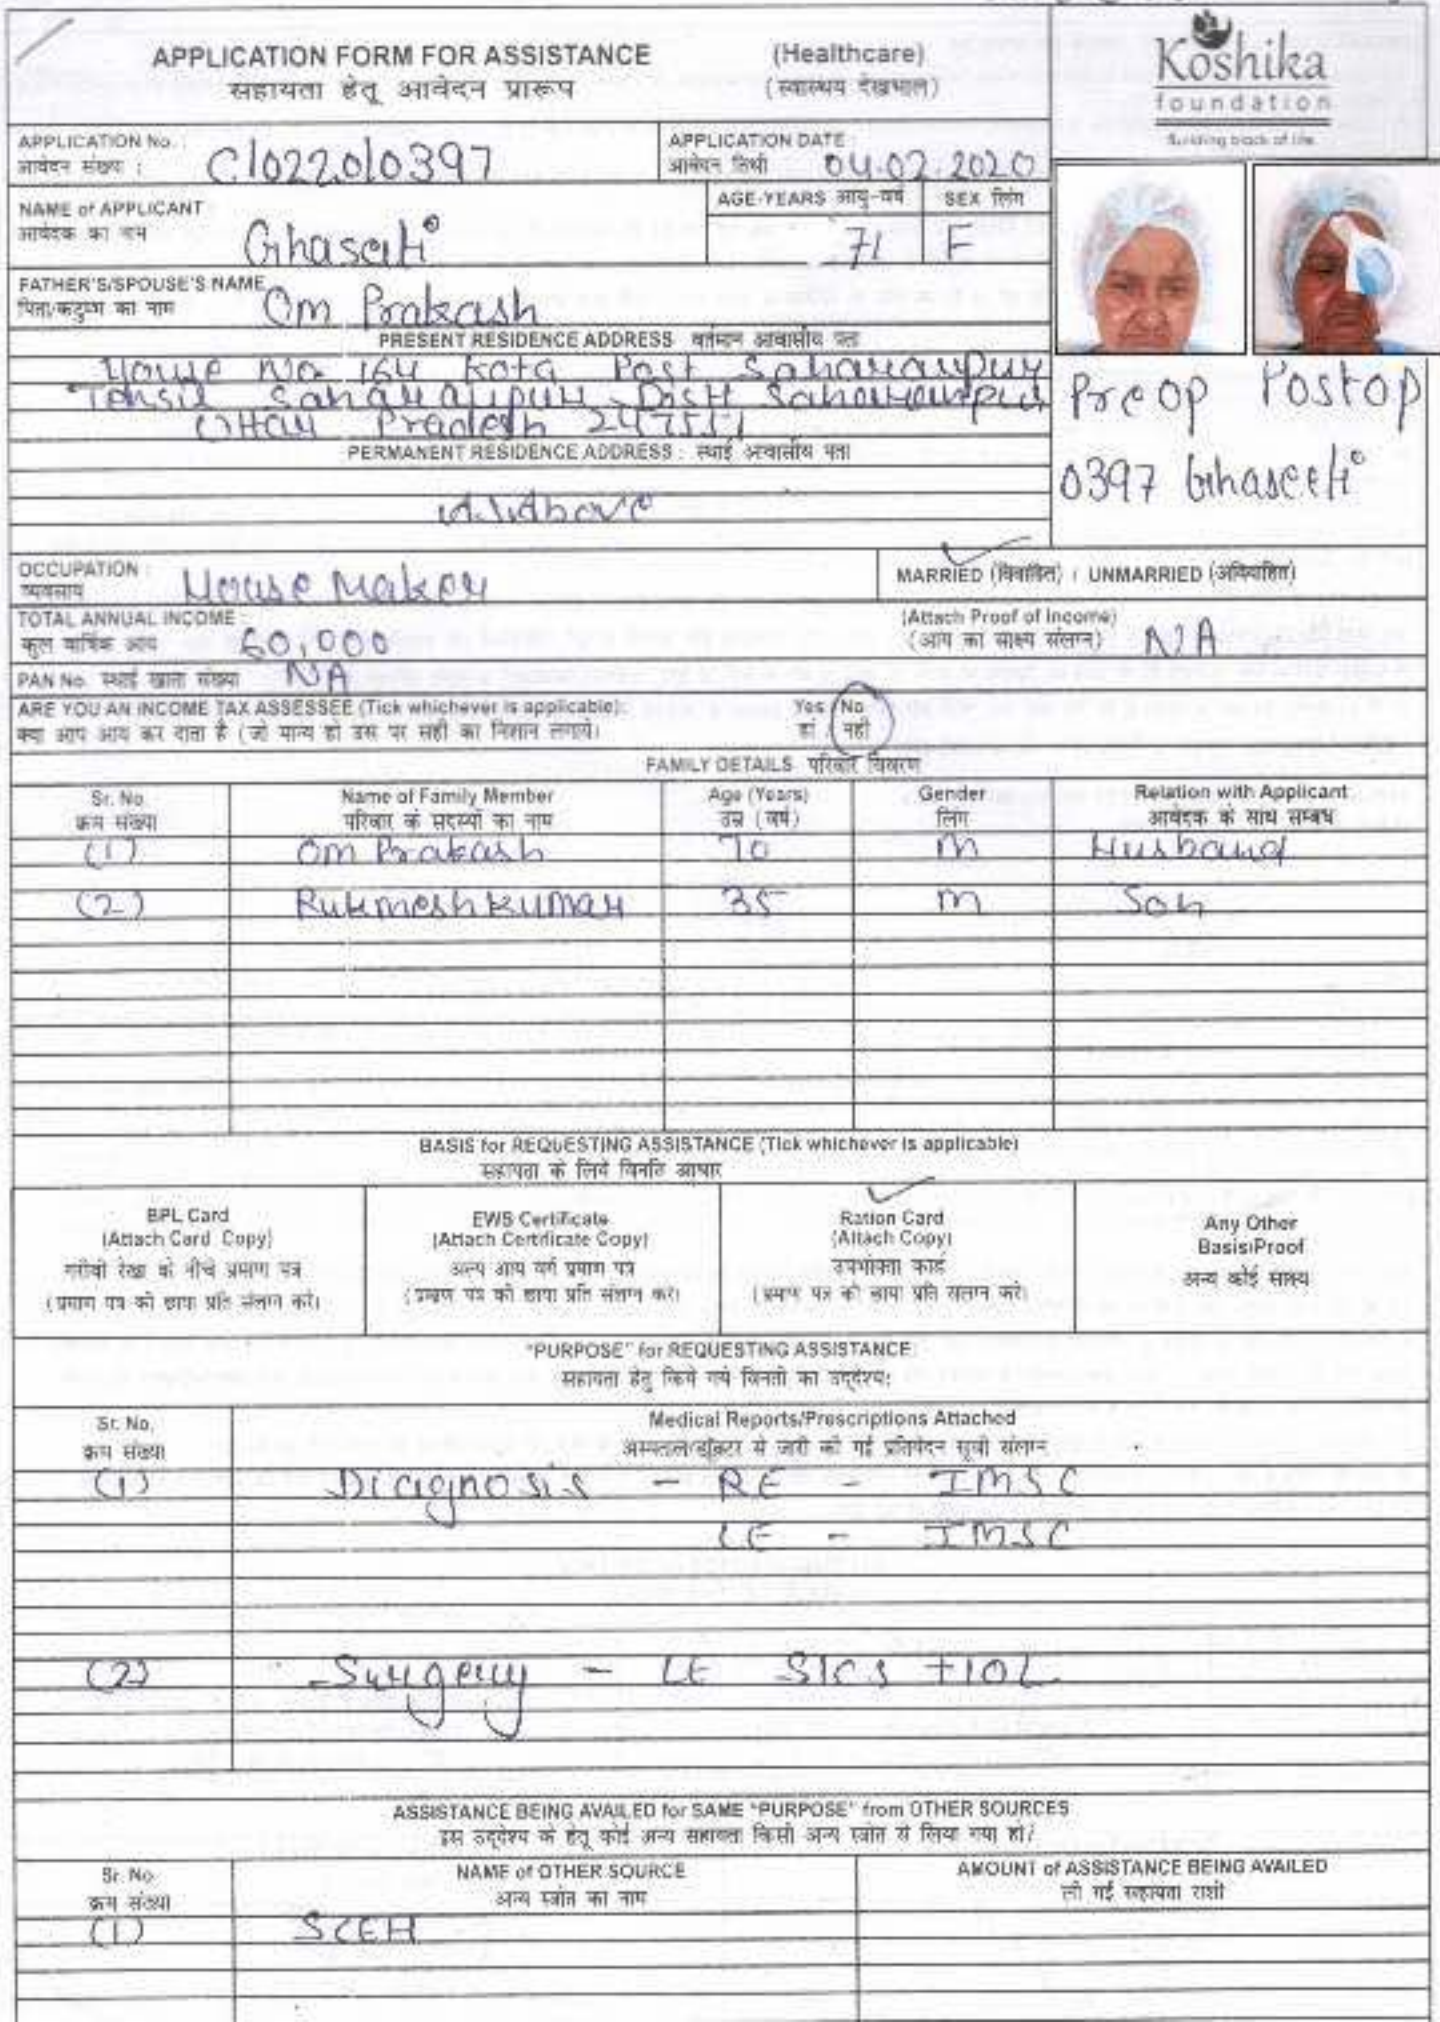 APPLICATION FORM FOR ASSISTANCE
सहायता हेतू आवेदन प्रारूप
(Healthcare)
(स्वास्थय देखभाल)
Koshika
foundation
Building block of life
APPLICATION No. :
आवेदन संख्या :
C/0220/0397
APPLICATION DATE
आवेदन तिथी
04.02.2020
NAME of APPLICANT
आवेदक का नाम
Ghaseeti
AGE-YEARS आयु-वर्ष
71
SEX लिंग
F
FATHER'S/SPOUSE'S NAME
पिता/कटुम्ब का नाम
Om Prakash
PRESENT RESIDENCE ADDRESS वर्तमान आवासीय पता
House No 164 Kota Post Saharanpur
Tehsil Saharanpur Distt Saharanpur
Uttar Pradesh 247551
Preop Postop
0397 Ghaseeti
PERMANENT RESIDENCE ADDRESS : स्थाई आवासीय पता
As Above
OCCUPATION :
व्यवसाय
House Maker
MARRIED (विवाहित) / UNMARRIED (अविवाहित)
TOTAL ANNUAL INCOME :
कुल वार्षिक आय
60,000
(Attach Proof of Income)
(आय का साक्ष्य संलग्न)
NA
PAN No. स्थाई खाता संख्या NA
ARE YOU AN INCOME TAX ASSESSEE (Tick whichever is applicable):
क्या आप आय कर दाता है (जो मान्य हो उस पर सही का निशान लगाये)
Yes / No
हां / नही
FAMILY DETAILS परिवार विवरण
Sr. No Name of Family Member Age (Years) Gender Relation with Applicant
क्रम संख्या परिवार के सदस्यों का नाम उम्र (वर्ष) लिंग आवेदक के साथ सम्बंध
(1) Om Prakash 70 M Husband
(2) Rukmesh Kumar 35 M Son
BASIS for REQUESTING ASSISTANCE (Tick whichever is applicable)
सहायता के लिये विनति आधार
BPL Card
(Attach Card Copy)
गरीबी रेखा के नीचे प्रमाण पत्र
(प्रमाण पत्र की छाया प्रति संलग्न करे)
EWS Certificate
(Attach Certificate Copy)
अल्प आय वर्ग प्रमाण पत्र
(प्रमाण पत्र की छाया प्रति संलग्न करे)
Ration Card
(Attach Copy)
उपभोक्ता कार्ड
(प्रमाण पत्र की छाया प्रति संलग्न करे)
Any Other
Basis/Proof
अन्य कोई साक्ष्य
"PURPOSE" for REQUESTING ASSISTANCE:
सहायता हेतु किये गये विनती का उद्देश्य:
Sr. No. Medical Reports/Prescriptions Attached
क्रम संख्या अस्पताल/डॉक्टर से जारी की गई प्रतिवेदन सूची संलग्न
(1) Diagnosis - RE - IMSC
LE - IMSC
(2) Surgery - LE SICS +IOL
ASSISTANCE BEING AVAILED for SAME "PURPOSE" from OTHER SOURCES
इस उद्देश्य के हेतू कोई अन्य सहायता किसी अन्य स्त्रोत से लिया गया हो?
Sr. No. NAME of OTHER SOURCE AMOUNT of ASSISTANCE BEING AVAILED
क्रम संख्या अन्य स्त्रोत का नाम ली गई सहायता राशी
(1) SCEH